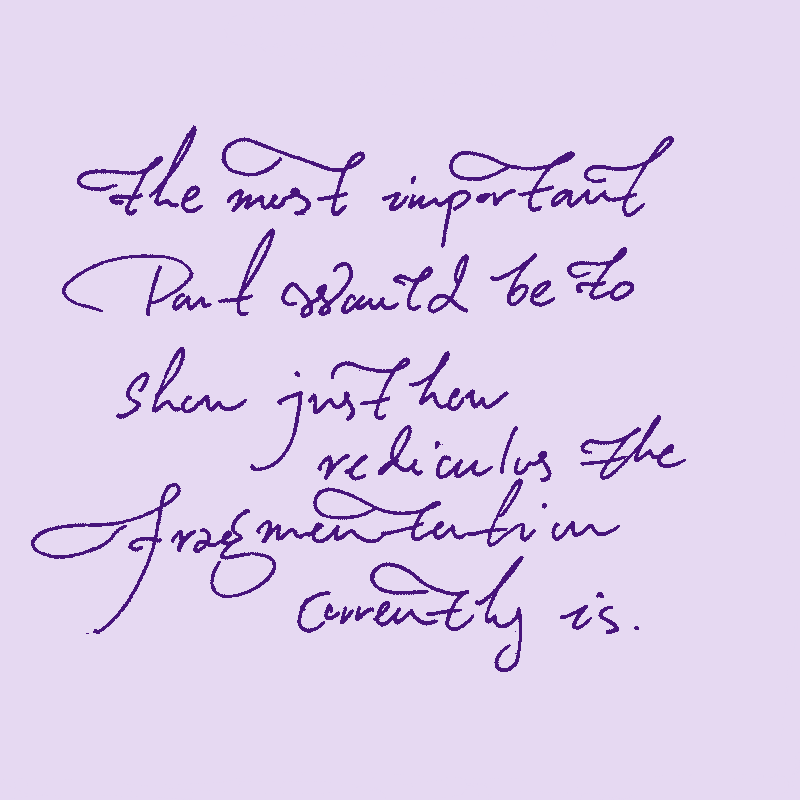 The most important
Part would be to
show just how
rediculus the
fragmentation
currently is.